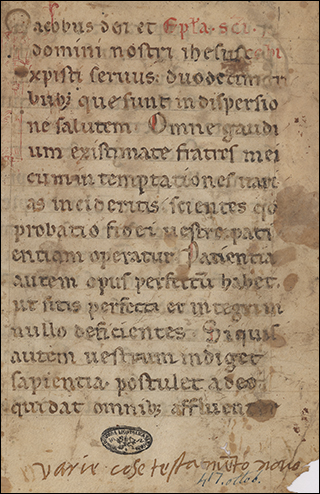 acobus dei et Epl̄a scī
domini nostri ihesu
xpisti seruus duodecim
bubꝫ que sunt in dispersio
ne salutem Omne gaudi
um existimate fratres mei
cum in temptationes uari
as incideritis scientes qđ
probatio fidei uestre pati
entiam operatur Patientia
autem opus perfectū habet
ut sitis perfecti et integri in
nullo deficientes Si quis
autem uestrum indiget
sapientia postulet a deo
qui dat omnibꝫ affluenter
varie cose testamēto novo